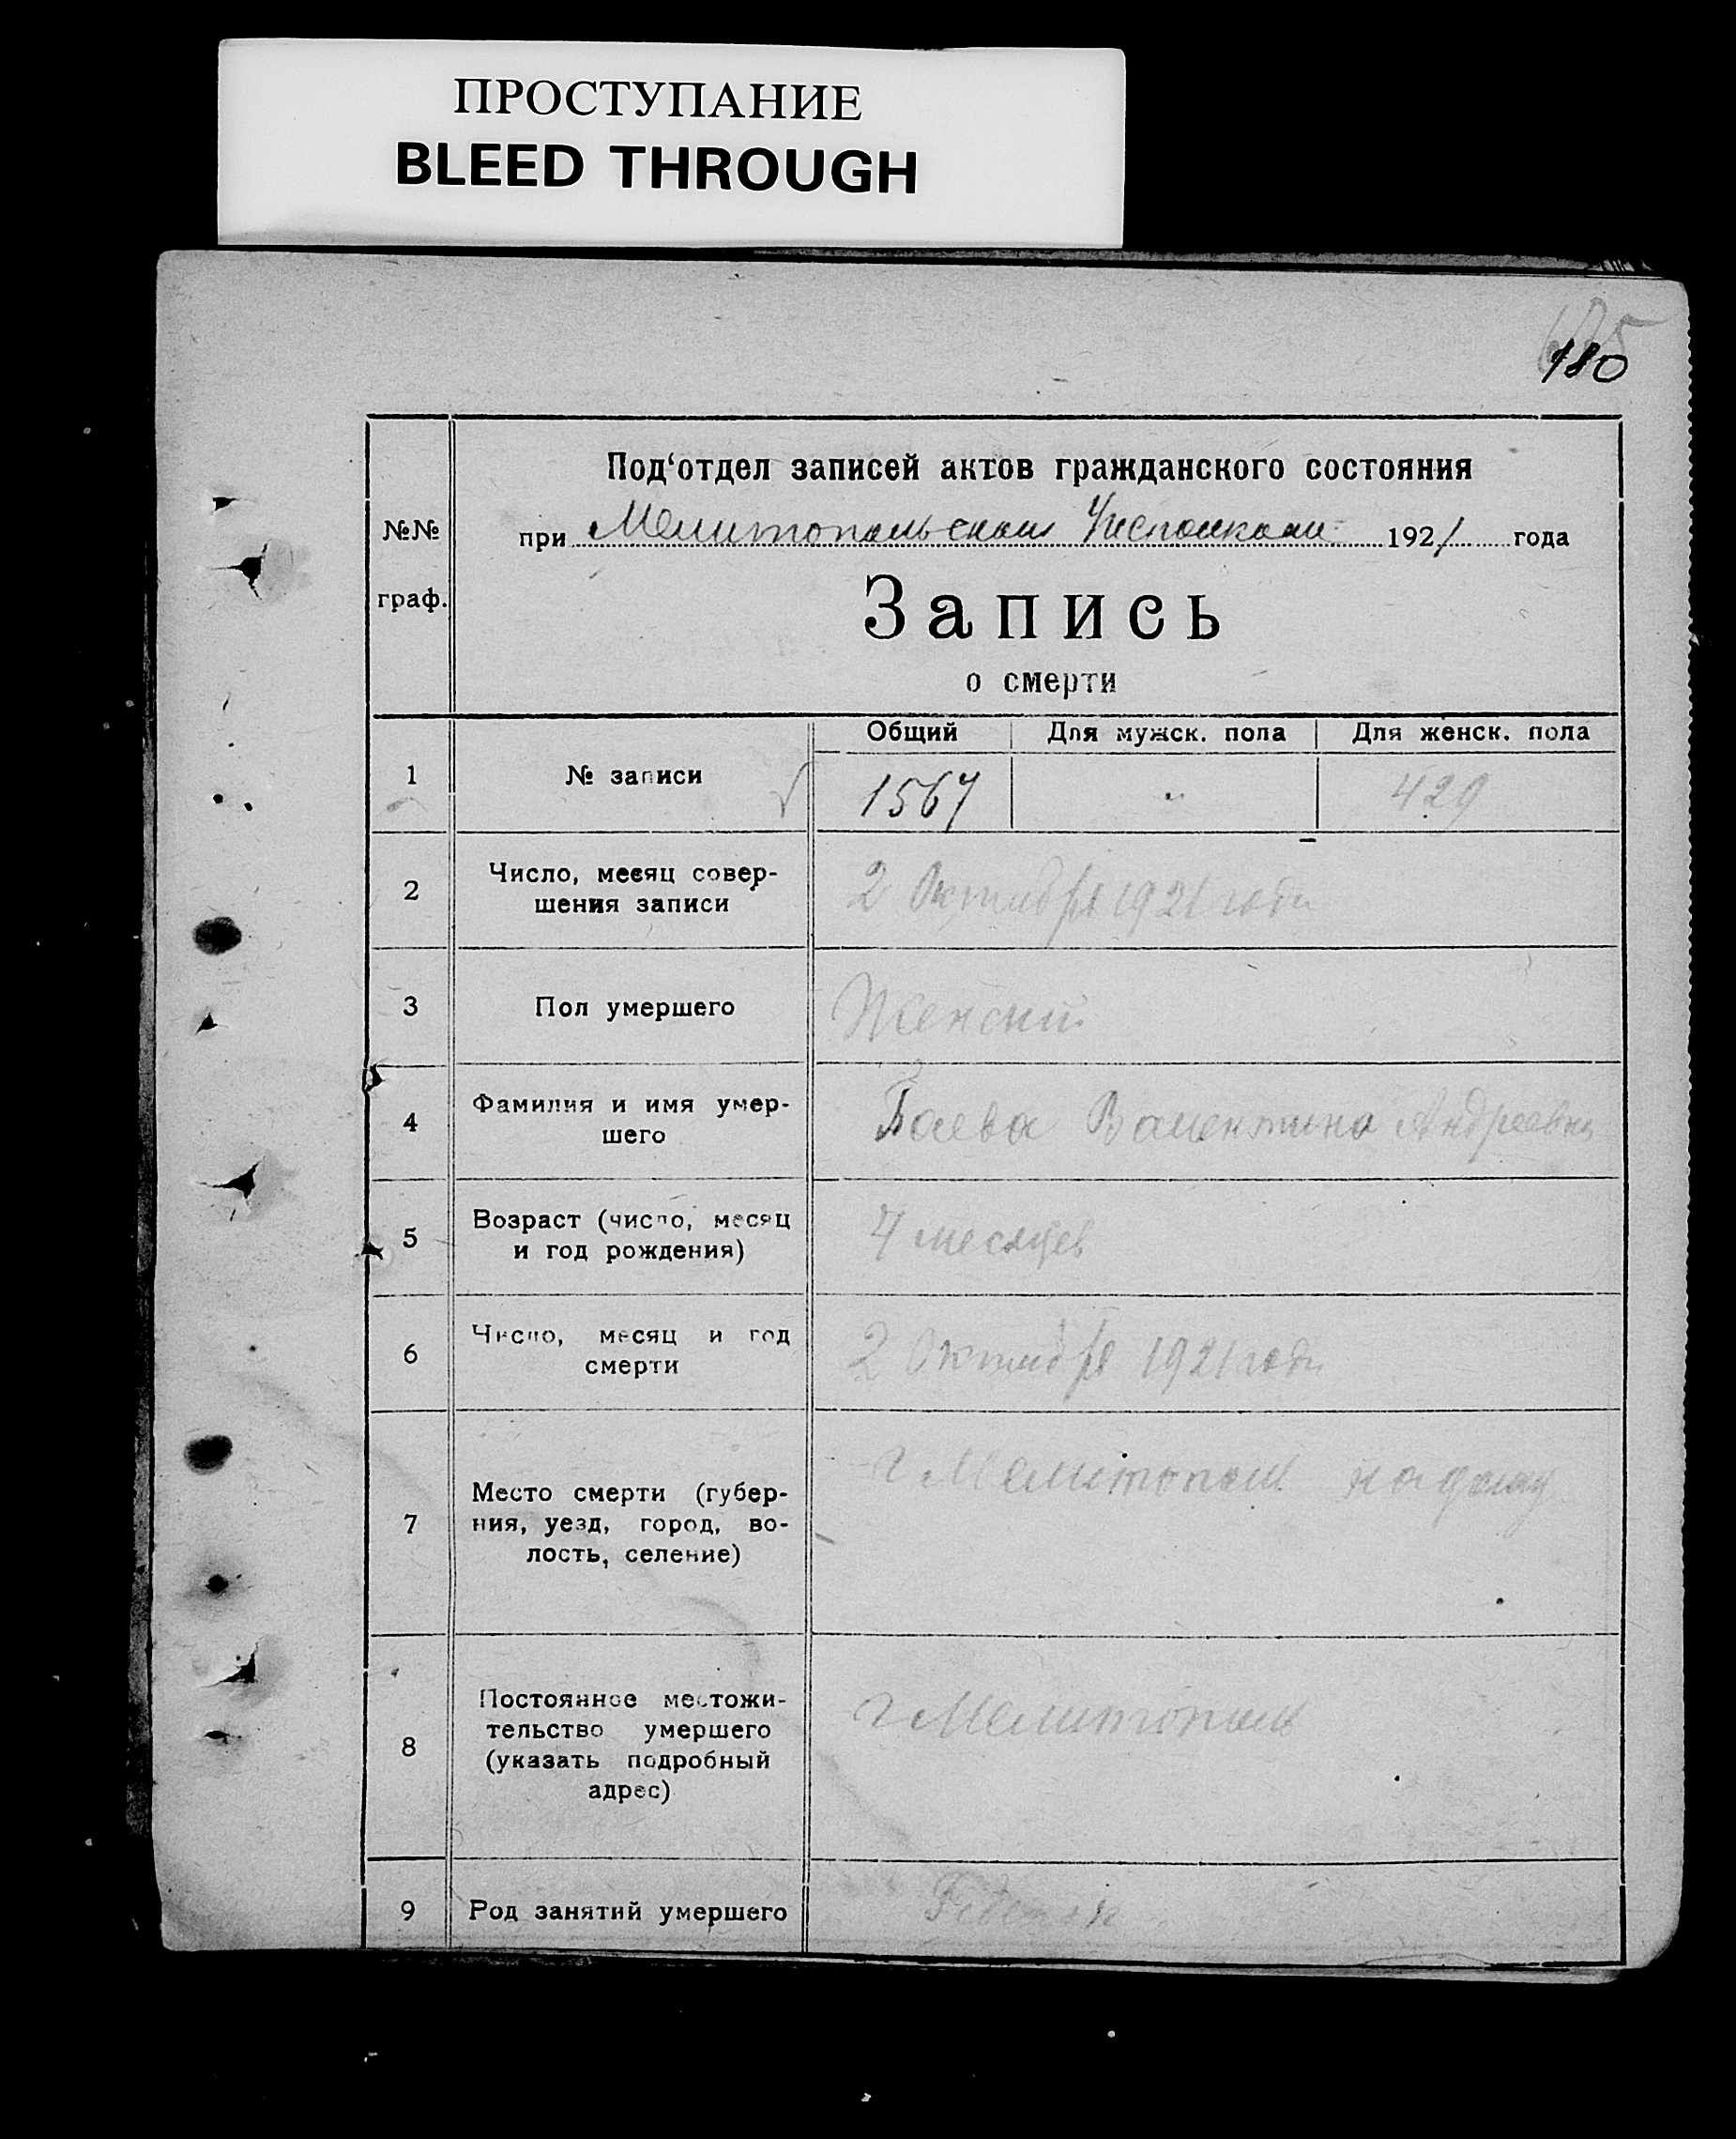 ПРОСТУПАНИЕ
BLEED THROUGH
180
Под‘отдел записей актов гражданского состояния
№№ граф.
при Мелитопольском Исполкоме 1921 года
Запись
о смерти
Общий Для мужск. пола Для женск. пола
1 № записи 1567 " 429
2 Число, месяц совер-
шения записи 2 Октября 1921 года
3 Пол умершего Женский
4 Фамилия и имя умер-
шего Баева Валентина Андреевна
5 Возраст (число, месяц
и год рождения) 4 месяцев
6 Число, месяц и год
смерти 2 Октября 1921 года
7 Место смерти (губер-
ния, уезд, город, во-
лость, селение) г Мелитополь на дому
8 Постоянное местожи-
тельство умершего
(указать подробный
адрес) г Мелитополь
9 Род занятий умершего